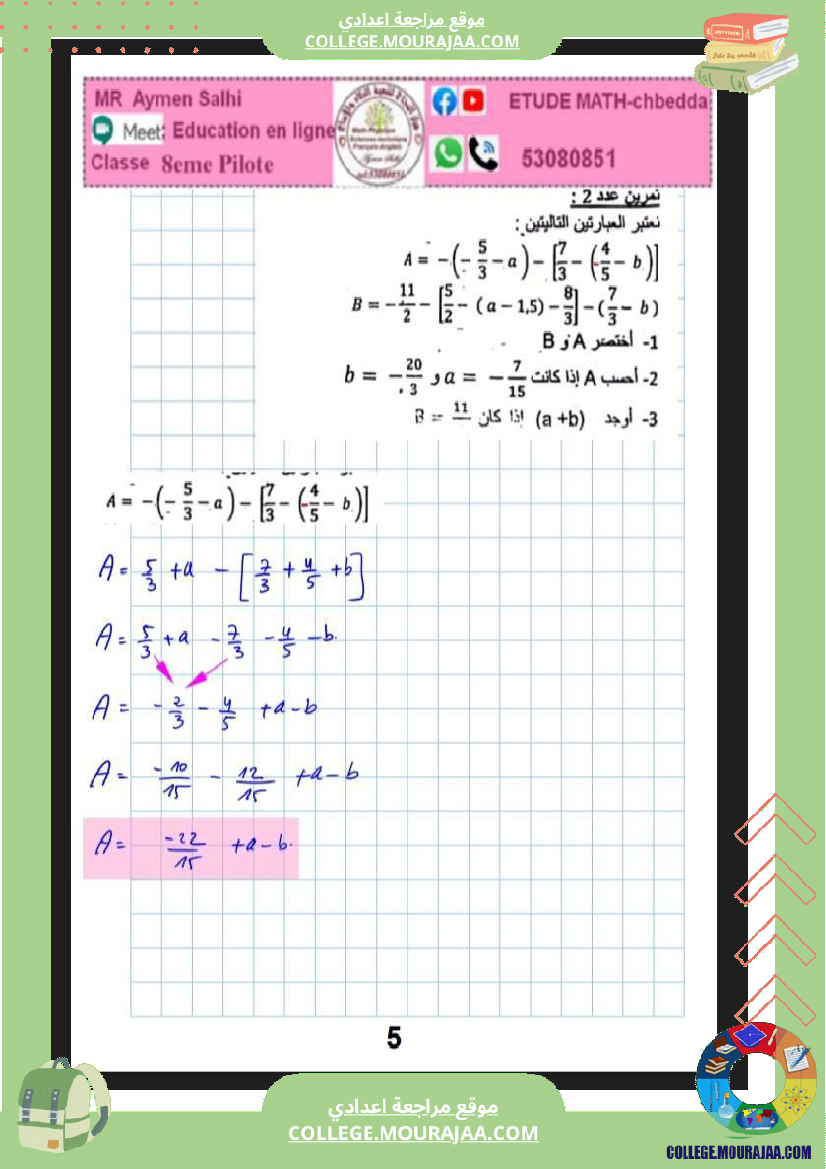 موقع مراجعة اعدادي
COLLEGE.MOURAJAA.COM
MR Aymen Salhi
Meet: Education en ligne
Classe 8eme Pilote
ETUDE MATH-chbedda
53080851
تمرين عدد 2 :
نعتبر العبارتين التاليتين :
A = -(-5/3 - a) - [7/3 - (-4/5 - b)]
B = -11/2 - [5/2 - (a - 1,5) - 8/3] - (7/3 - b)
1- أختصر A و B
2- أحسب A إذا كانت a = -7/15 و b = -20/3
3- أوجد (a+b) إذا كان B = 11
A = -(-5/3 - a) - [7/3 - (-4/5 - b)]
A = 5/3 + a - [7/3 + 4/5 + b]
A = 5/3 + a - 7/3 - 4/5 - b.
A = -2/3 - 4/5 + a - b
A = -10/15 - 12/15 + a - b
A = -22/15 + a - b.
5
موقع مراجعة اعدادي
COLLEGE.MOURAJAA.COM
COLLEGE.MOURAJAA.COM